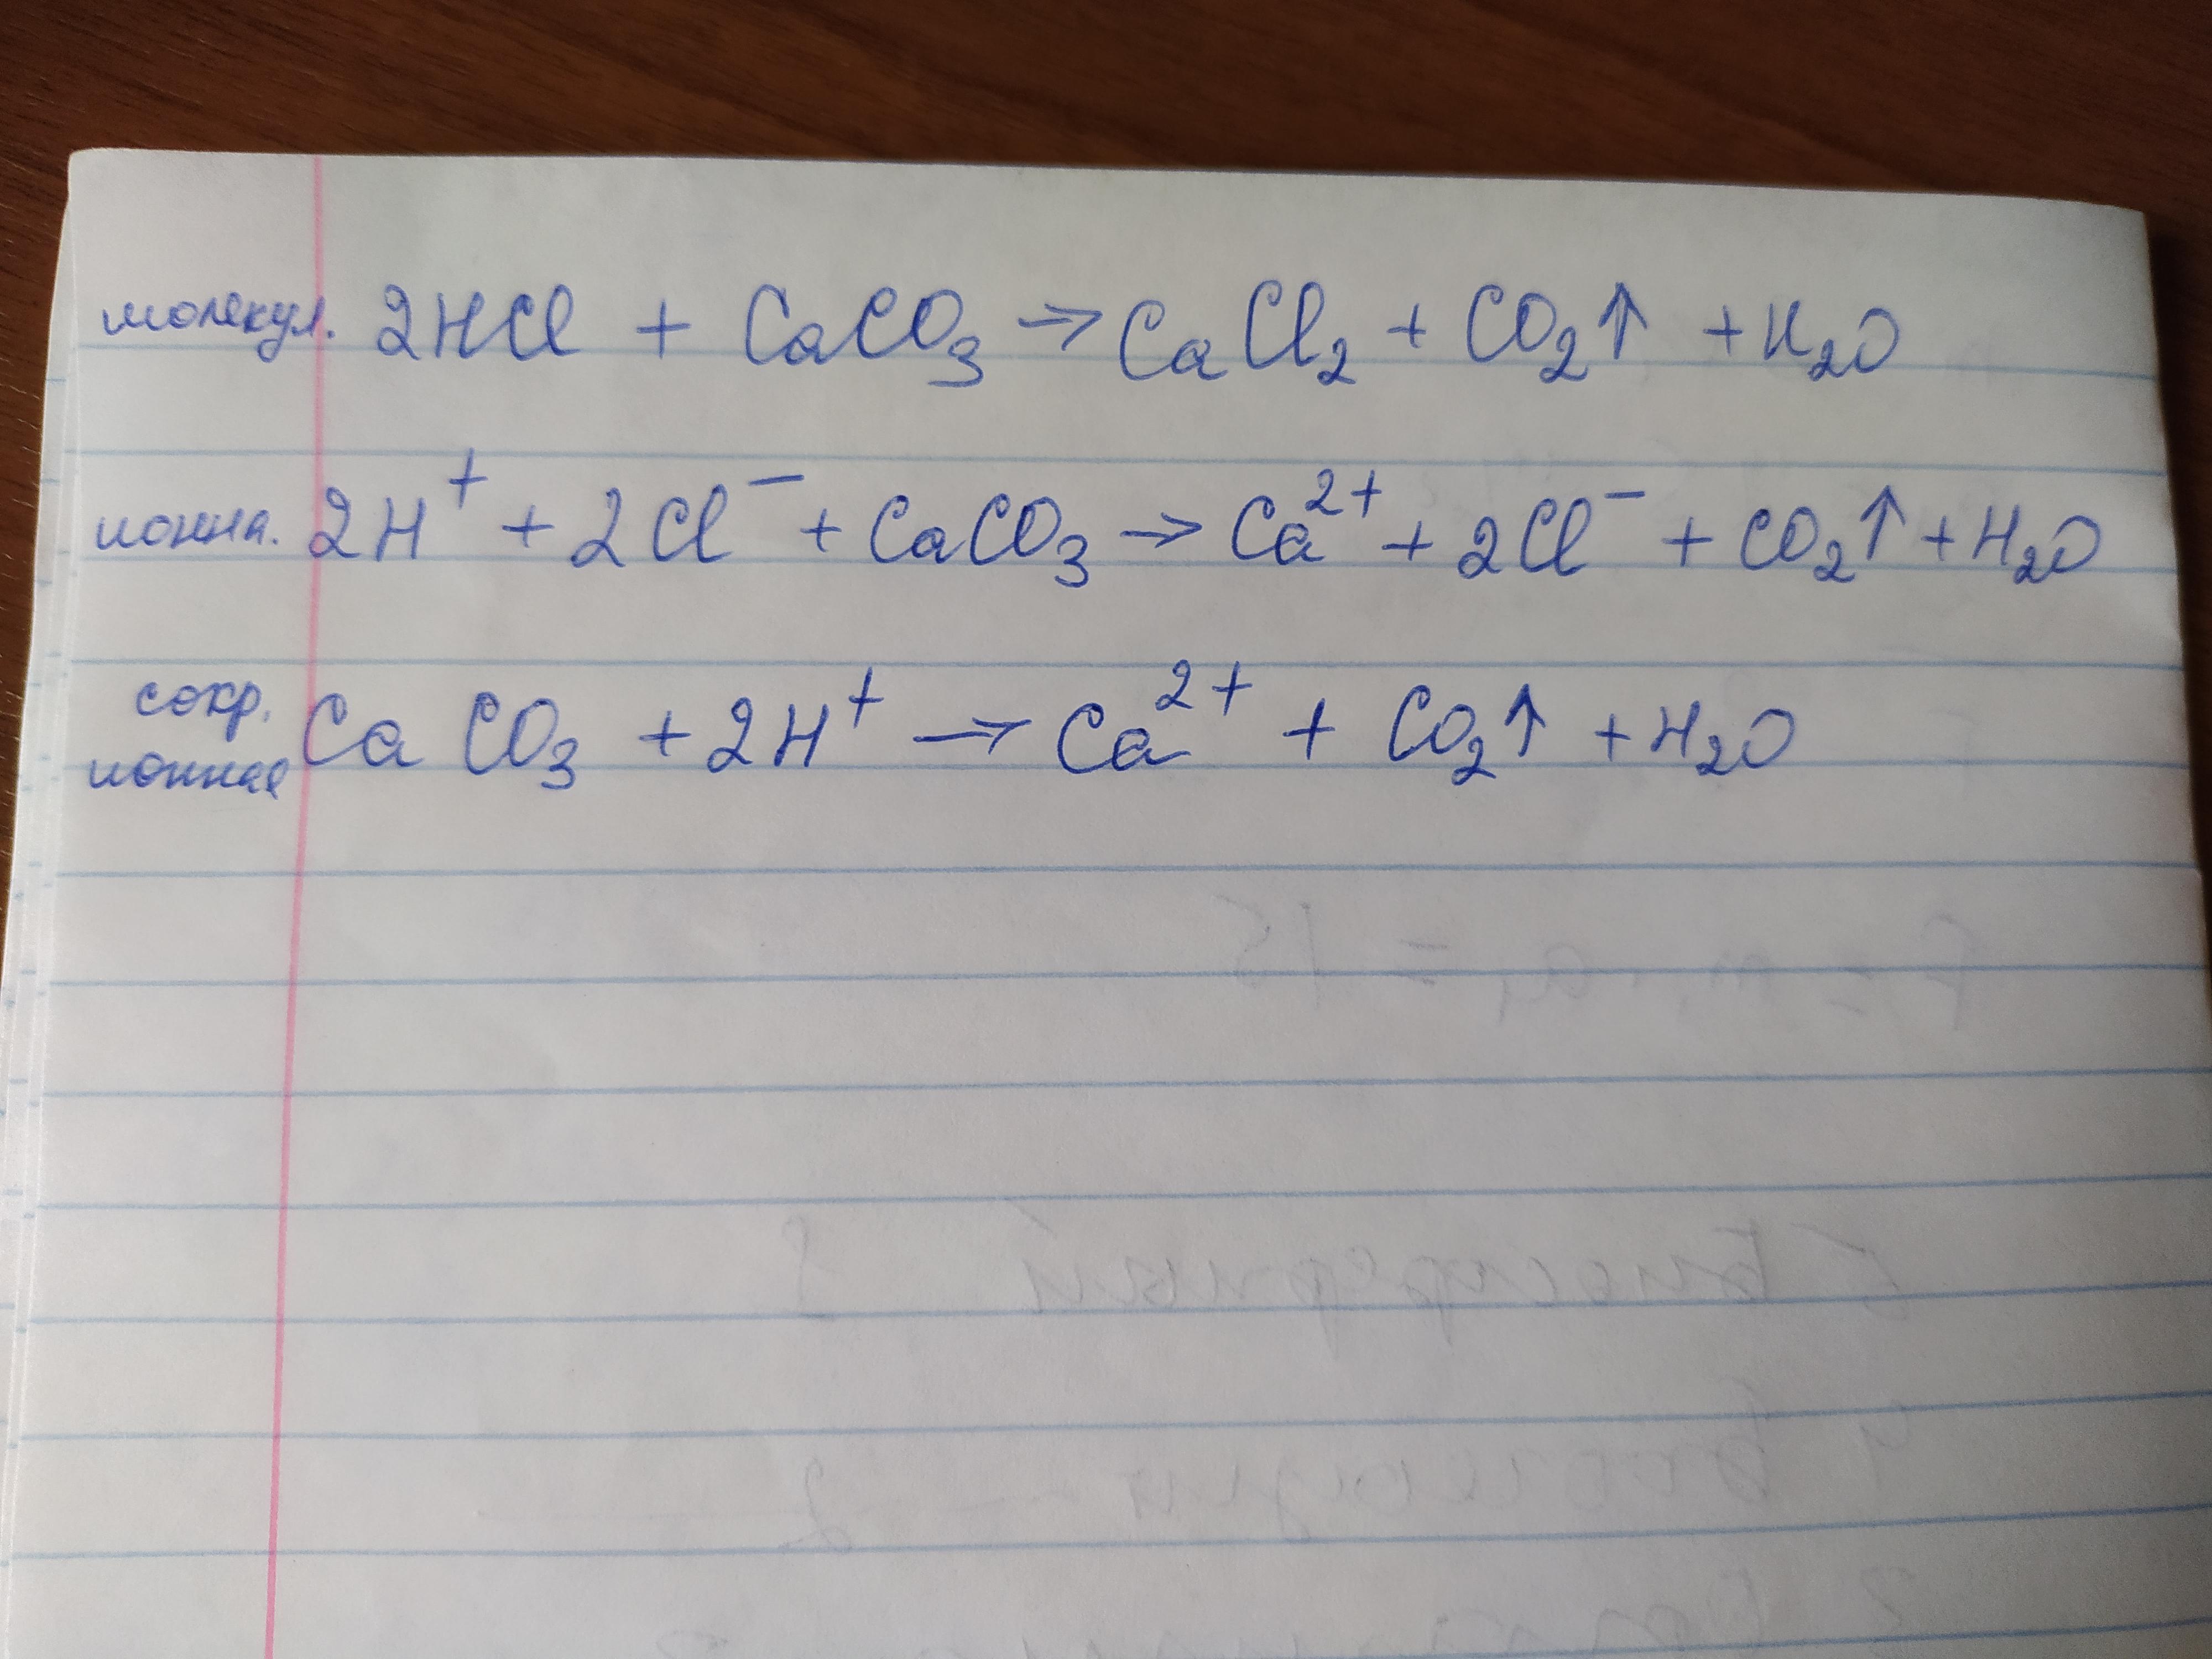 молекул. 2HCl + CaCO₃ → CaCl₂ + CO₂↑ + H₂O
ионна. 2H⁺ + 2Cl⁻ + CaCO₃ → Ca²⁺ + 2Cl⁻ + CO₂↑ + H₂O
сокр. ионная CaCO₃ + 2H⁺ → Ca²⁺ + CO₂↑ + H₂O